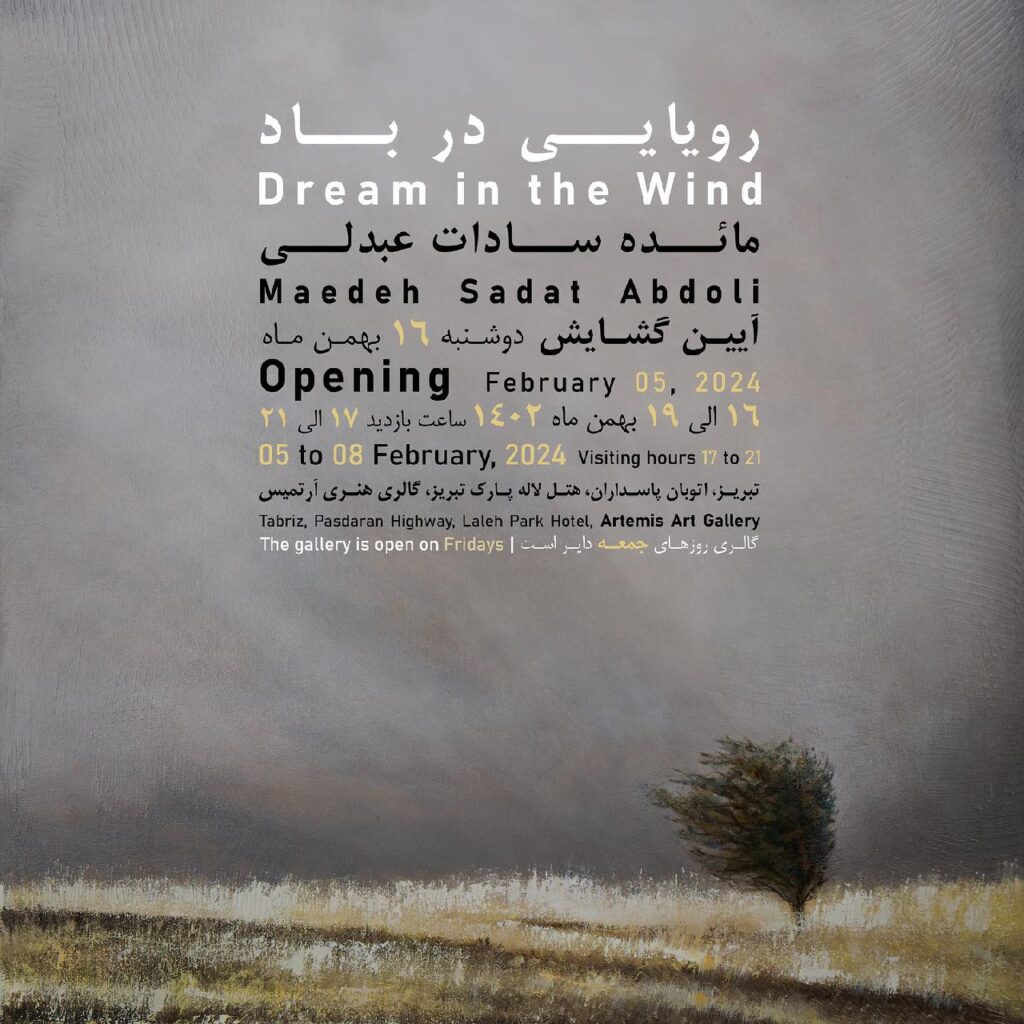 رویایی در باد
Dream in the Wind
مائده سادات عبدلی
Maedeh Sadat Abdoli
آیین گشایش دوشنبه ۱۶ بهمن ماه
Opening February 05, 2024
۱۶ الی ۱۹ بهمن ماه ۱۴۰۲ ساعت بازدید ۱۷ الی ۲۱
05 to 08 February, 2024 Visiting hours 17 to 21
تبریز، اتوبان پاسداران، هتل لاله پارک تبریز، گالری هنری آرتمیس
Tabriz, Pasdaran Highway, Laleh Park Hotel, Artemis Art Gallery
The gallery is open on Fridays | گالری روزهای جمعه دایر است